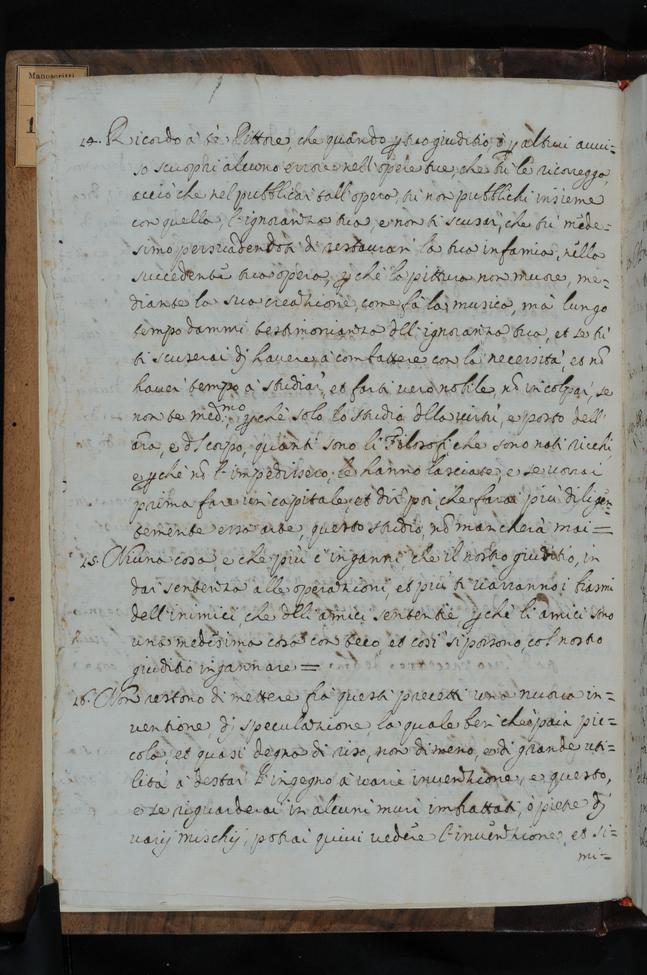 Manoscritti
1
14. Ricordo à te Pittore, che quando p tuo giuditio, ò p altrui aui=
so scuopri alcuno errore nell'opere tue, che tù le ricoregga,
acciò che nel pubblicar tall'opera, tù non pubblichi insieme
con quella, l'ignoranza tua, e non ti scusar, che tù mede=
simo persuadendoti di restaurar la tua infamia, nella
succedente tua opera, pche la pittura non muore, me=
diante la sua creazione, come fà la musica, mà lungo
tempo darrà testimonianza dll'ignoranza tua, et se tù
ti scuserai dj havere à combattere con la necessità, et nõ
haver tempo à studiar, et farti vero nobile, nõ incolpar, se
non te med.mo, pche solo lo studio dlla virtù, e pasto dell'
aĩa, e dl corpo, quanti sono li Filosofi che sono nati ricchi
e pche nõ l'impedissero, le hanno lasciate, e se vorai
prima fare un capitale, et dir poi, che farai più diligen=
temente essa arte, questo studio nõ mancherà mai=
15. Niuna cosa, e che più c'inganni che il nostro giuditio, in
dar sentenza alle operazioni, et più ti varranno i biasmi
dell'inimici che dlli amici sentenze, pche li amici sono
una medesima cosa con teco, et così si possono, col nostro
giuditio ingannare=
16. Non restono di mettere frà questi precetti una nuova in=
ventione, dj speculazione, la quale ben che paia pic=
cola, et quasi degna di riso, non di meno, e di grande uti=
lità à destar l'ingegno à varie inventione, e questo,
e se riguarderai in alcuni muri imbrattati, ò pietre dj
varij mischij, potrai quivi vedere l'inventione, et si=
mi=